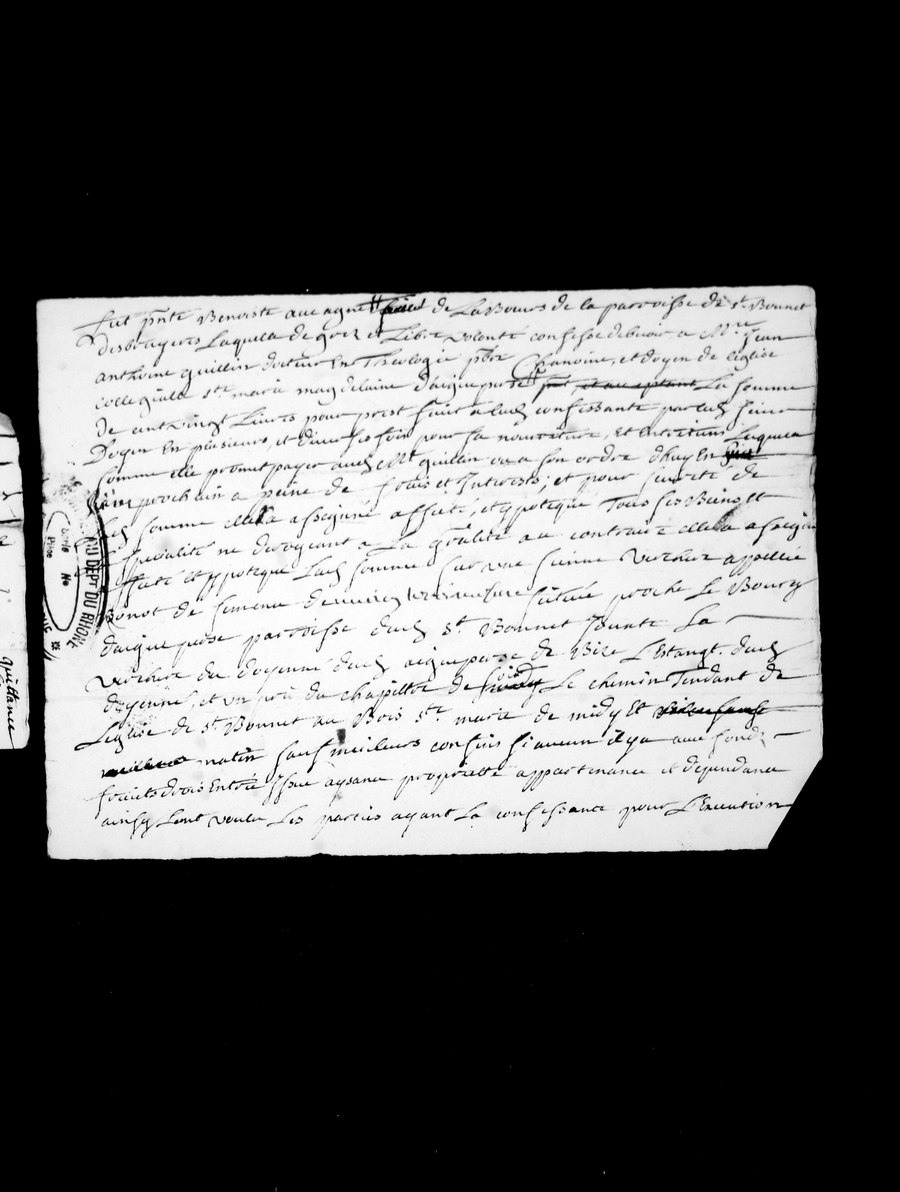 fut pnte Benoiste auvergne de Labours de la parroisse de st Bonnet
desbruyeres Laquelle de grez et Libre volonté confesse debvoir a Mre Jean
anthoine guillin docteur En Theologie pbre Chanoine, et doyen de léglise
collegialle ste marie magdelaine daigueperse pnt, et acceptant La somme
De cent vingt Livres pour prest faict a lad confessante par led sieur
Doyen En plusieurs, et diverses fois pour sa nourriture, Et Entretiens Laquelle
somme elle promet payer aud Mre guillin ou a son ordre dhuy En
prochain a peine de frais et Interests, et pour seureté de
lad somme elle a assigné affecté, et ypotequé Tous ses Biens et
specialité ne derogeant a La gñalité au contraire elle a assigné
affecté et ypotequé Lad somme sur une sienne verchere appellée
de semence situee proche Le Bourg
daigueperse parroisse dud st Bonnet Joincte La
verchere du doyenné dud aigueperse de Bize LEstangt dud
doyenné, et un pré du chapittre de soir Le chemin Tendant de
Léglise de st Bonnet au Bois ste marie de midy Et
matin sauf meilleurs confins si aucun il y a avec fondz
fruicts droits Entrée Issue aysance proprietté appartenance et dependance
ainsy Lont voulu Les parties ayant La confessante pour LExecution
AU DEPT DU RHONE
quittance